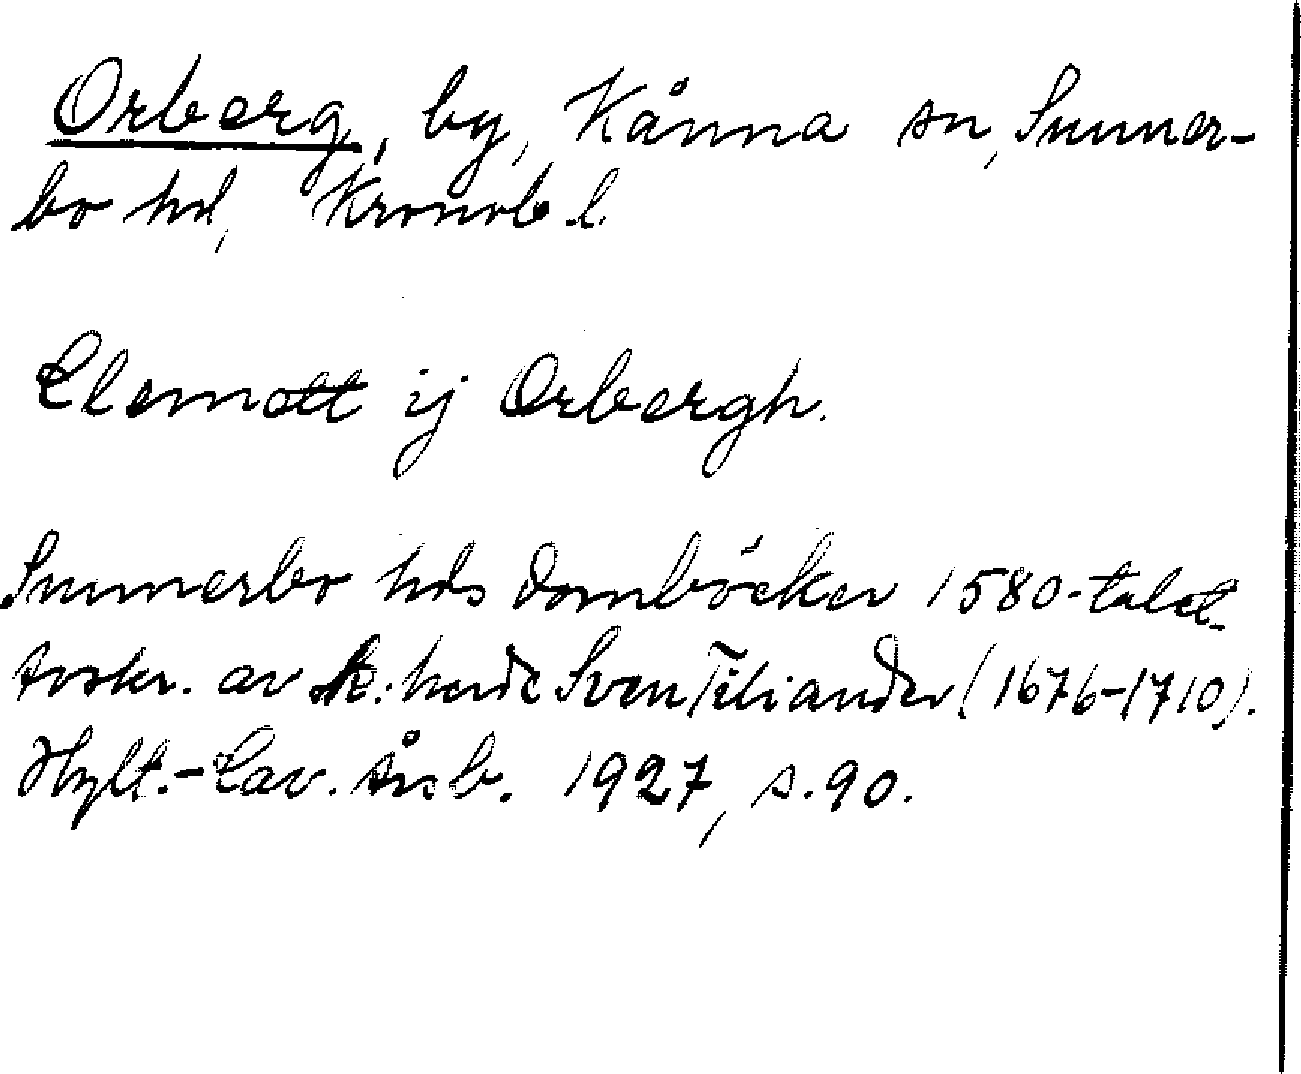 Orberg, by, Kånna sn, Sunner-
bo hd, Kronob l.
Clemett ij Orbergh.
Sunnerbo hds domböcker 1580-talet
Avskr. av k.herde Sven Tiliander (1676-1710).
Hylt.-Cav. årsb. 1927, s. 90.